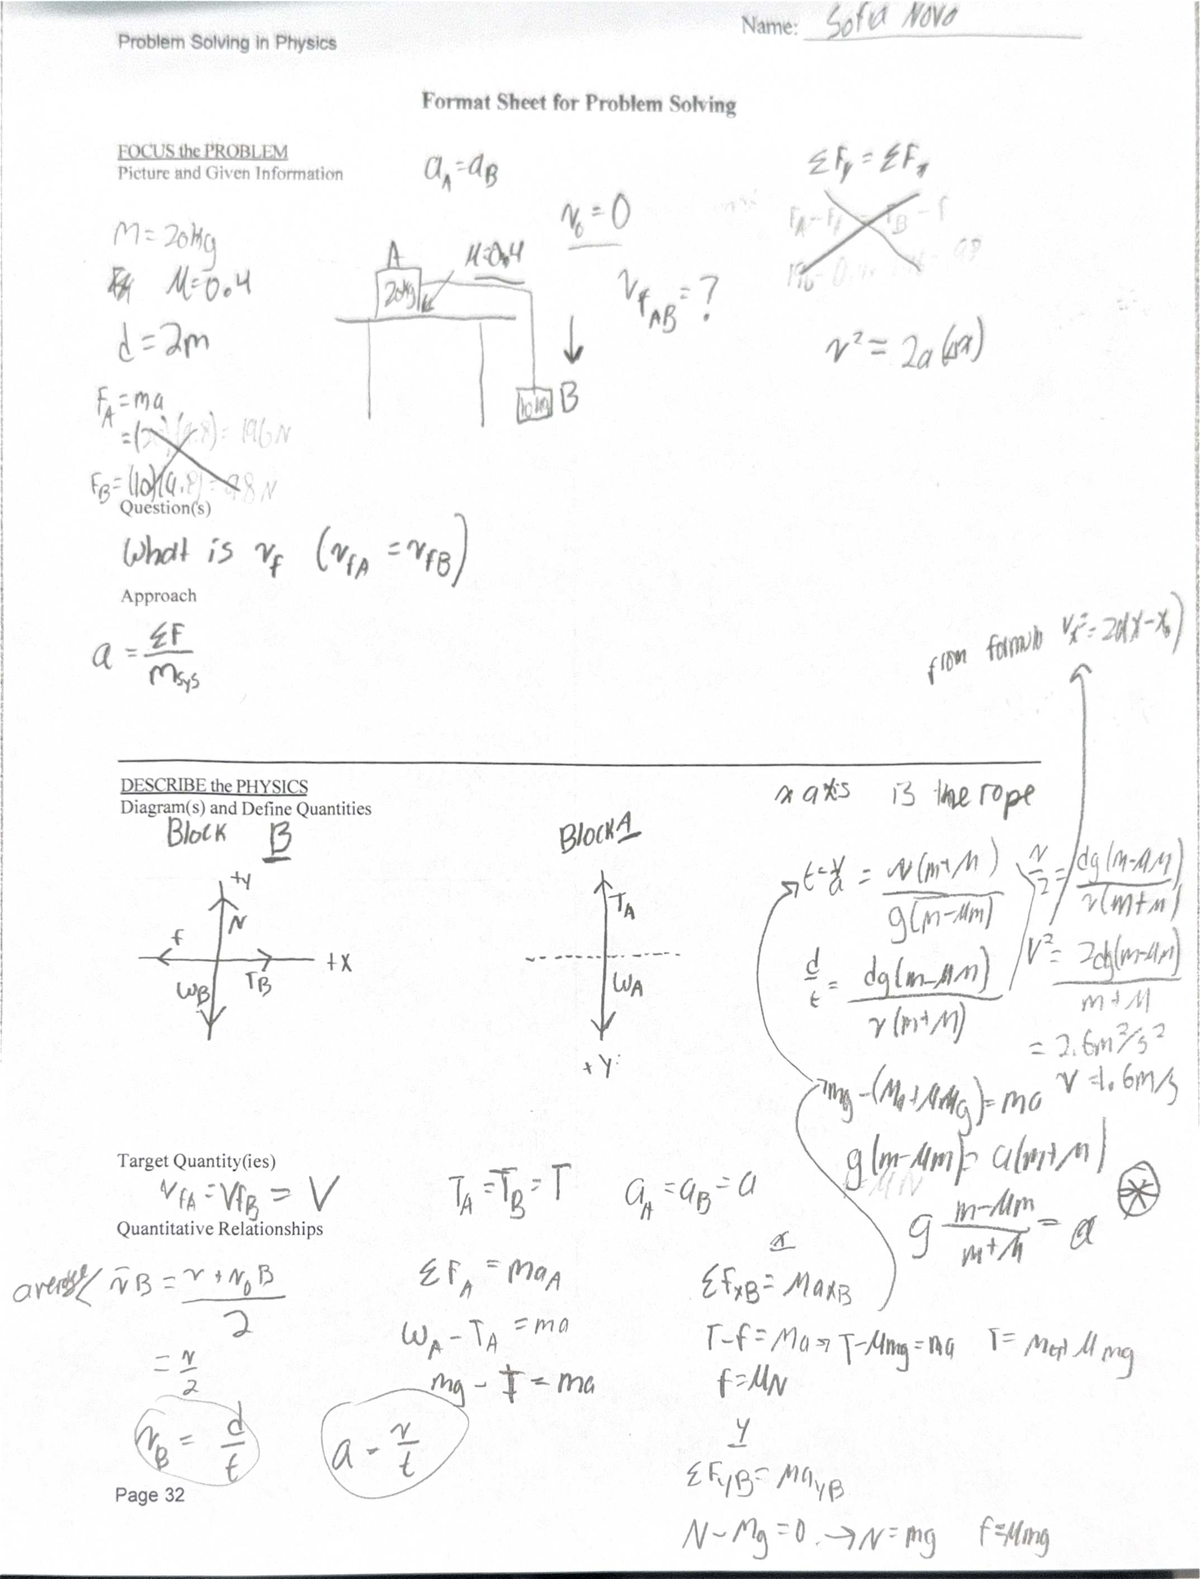 Problem Solving in Physics
Name: Sofia Novo
Format Sheet for Problem Solving
FOCUS the PROBLEM
Picture and Given Information
a_A = a_B
ΣF_y = ΣF_x
M = 20kg
μ = 0.4
d = 2m
A
20kg
μ = 0.4
B
v_0 = 0
v_f_AB = ?
v² = 2a(Δx)
F_A = ma
= 196N
F_B = (10)(9.8) = 98N
Question(s)
What is v_f (v_fA = v_fB)
Approach
a = ΣF / m_sys
from formula v_x² = 2a(x-x_0)
DESCRIBE the PHYSICS
Diagram(s) and Define Quantities
x axis is the rope
Block B
+y
N
f
+x
W_B
T_B
Block A
T_A
W_A
+y
t = v/a = v(m+M) / g(m-μm)
v/2 = dg(m-μM) / v(m+M)
d/t = dg(m-μM) / v(m+M)
v² = 2dg(m-μM) / m+M
= 2.6m²/s²
v = 1.6m/s
mg-(Ma+μMg) = ma
g(m-μm) = a(m+M)
g m-μm / m+M = a
Target Quantity(ies)
v_fA = v_fB = V
T_A = T_B = T
a_A = a_B = a
Quantitative Relationships
average v̄B = v+v_0B / 2
= v/2
v_B = d/t
a = v/t
ΣF_A = ma_A
W_A - T_A = ma
mg - T = ma
x
ΣF_xB = Ma_xB
T-f = Ma → T-μmg = Ma
f = μN
y
ΣF_yB = Ma_yB
N-Mg = 0 → N = mg f = μmg
Page 32